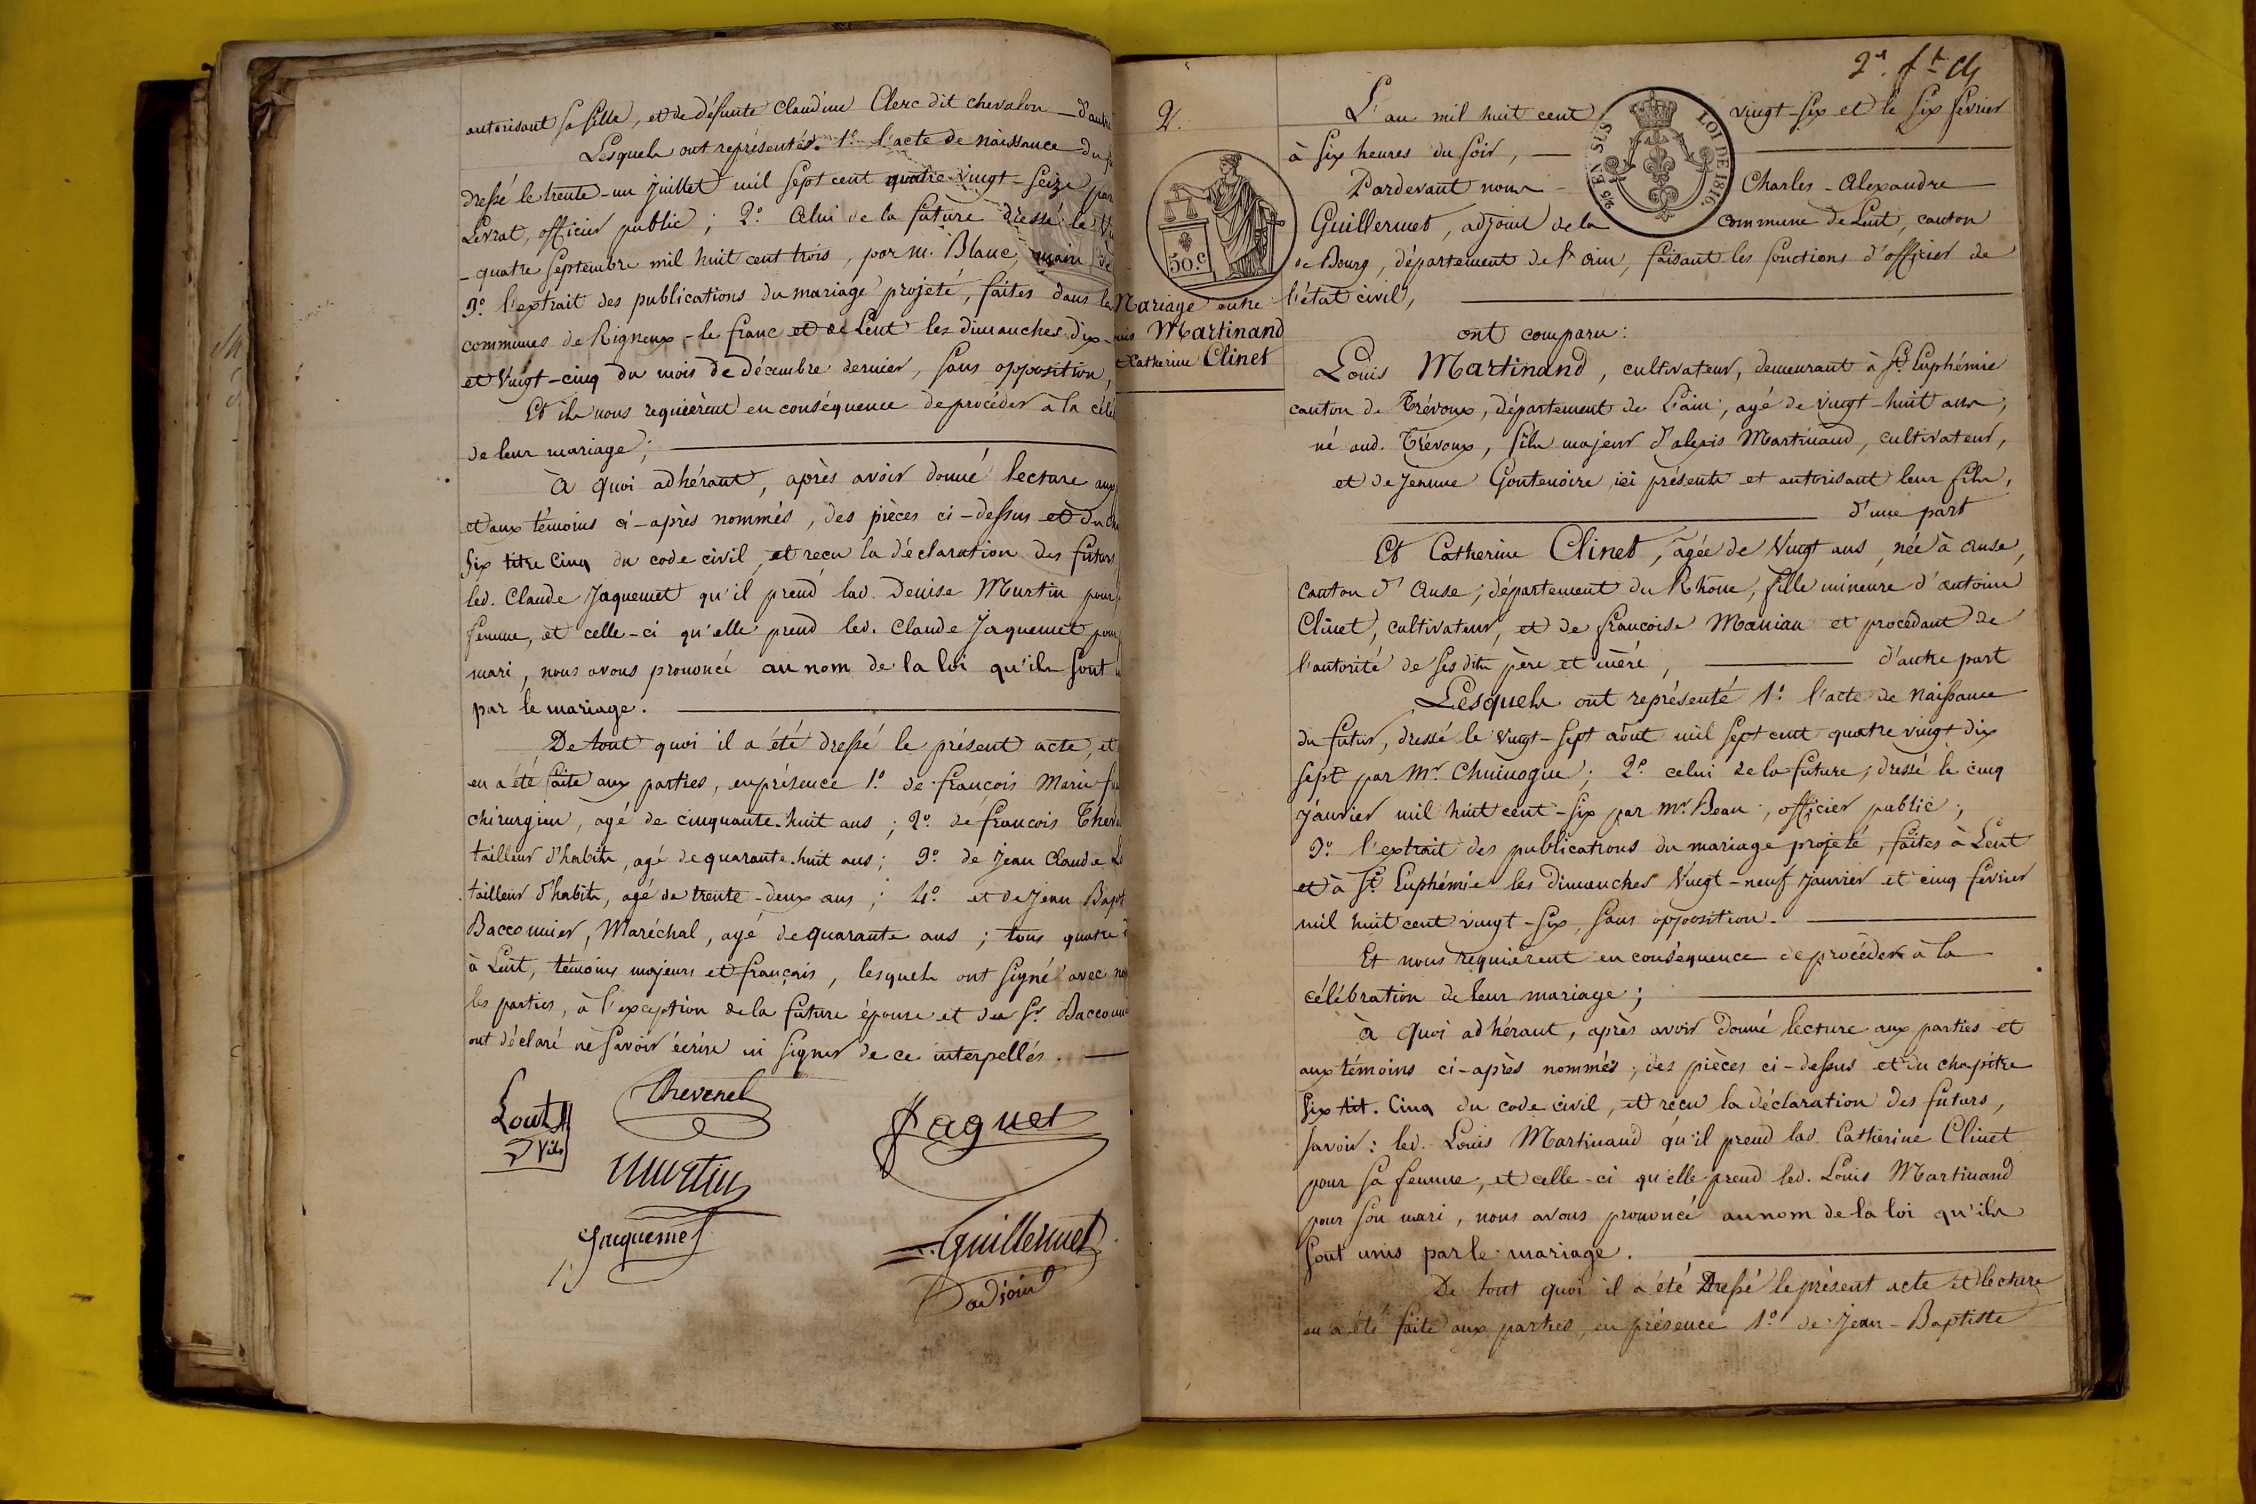 autorisant sa fille, et de défunte Claudine Clerc dit chevalon — d'autre
Lesquels ont représentés. 1.º l'acte de naissance du
dressé le trente-un juillet mil sept cent quatre-vingt-seize par
Levrat, officier public ; 2.º Celui de la future dressé le
-quatre Septembre mil huit cent trois, par m. Blanc, maire de
3.º l'extrait des publications du mariage projeté, faites dans les
communes de Rigneux-le franc et de Lent les dimanches dix-
et Vingt-cinq du mois de décembre dernier, sans opposition,
Et ils nous requièrent en conséquence de procéder à la
de leur mariage ;
À quoi adhérant, après avoir donné lecture aux
et aux témoins ci-après nommés, des pièces ci-dessus et du
Six titre Cinq du code civil, et recu la déclaration des futurs
led. Claude Jaquemet qu'il prend lad. Denise Murtin pour
femme, et celle-ci qu'elle prend led. Claude Jaquemet pour
mari, nous avons prononcé au nom de la loi qu'ils sont
par le mariage.
De tout quoi il a été dressé le présent acte, et
en a été faite aux parties, en présence 1.º de françois Marie
chirurgien, agé de cinquante-huit ans ; 2.º de françois
tailleur d'habits, agé de quarante-huit ans ; 3.º de Jean Claude
tailleur d'habits, agé de trente-deux ans ; 4.º et de Jean
Bacconnier, Maréchal, agé de quarante ans ; tous quatre
à Lent, témoins majeurs et français, lesquels ont signé avec
les parties, à l'exception de la future épouse et du Sr.
ont déclaré ne savoir écrire ni signer de ce interpellés.
Thevenet
Jaquet
Murtin
Jacquemet
Guillermet
adjoint
2.
50.c
Mariage entre
Martinand
Catherine Clinet
L'an mil huit cent vingt-six et le six février
LOI DE 1816.
à six heures du soir,
Pardevant nous Charles-Alexandre
Guillermet, adjoint de la commune de Lent, canton
de Bourg, département de l'ain, faisant les fonctions d'officier de
l'état civil,
ont comparu :
Louis Martinand, cultivateur, demeurant à St. Euphémie
canton de Trévoux, département de l'ain, agé de vingt-huit ans,
né aud. Trévoux, fils majeur d'alexis Martinand, cultivateur,
et de Jeanne Gontenoire ici présents et autorisant leur fils,
d'une part
Et Catherine Clinet, agée de Vingt ans, née à anse,
canton d'anse, département du Rhône, fille mineure d'antoine
Clinet, cultivateur, et de françoise Manian et procédant de
l'autorité de ses dits père et mère, d'autre part
Lesquels ont représenté 1.º l'acte de naissance
du futur, dressé le vingt-sept août mil sept cent quatre vingt dix
sept par Mr. ; 2.º celui de la future, dressé le cinq
janvier mil huit cent-six par Mr. Beau, officier public ;
3.º l'extrait des publications du mariage projeté, faites à Lent
et à St. Euphémie les dimanches Vingt-neuf janvier et cinq février
mil huit cent vingt-six, sans opposition.
Et nous requièrent en conséquence de procéder à la
célébration de leur mariage ;
À quoi adhérant, après avoir donné lecture aux parties et
aux témoins ci-après nommés, des pièces ci-dessus et du chapitre
Six tit. Cinq du code civil, et recu la déclaration des futurs,
savoir : led. Louis Martinand qu'il prend lad. Catherine Clinet
pour sa femme, et celle-ci qu'elle prend led. Louis Martinand
pour son mari, nous avons prononcé au nom de la loi qu'ils
sont unis par le mariage.
De tout quoi il a été dressé le présent acte et lecture
en a été faite aux parties, en présence 1.º de Jean-Baptiste